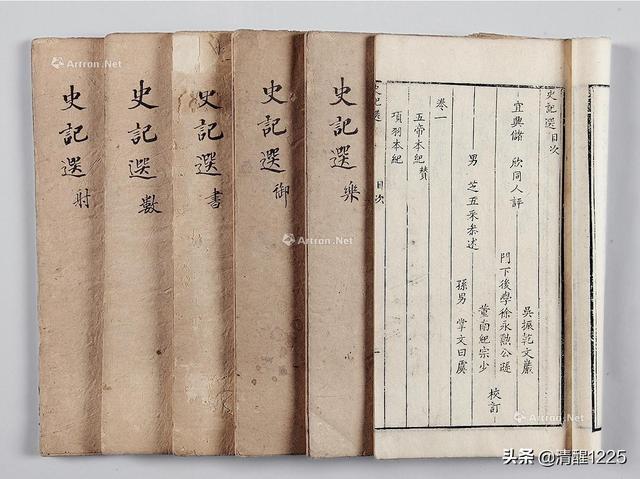 史記選 樂
史記選 御
史記選 書
史記選 數
史記選 射
史記選目次
宜興儲 欣同人評
吳振乾文巖
門下後學徐永勲公遜 校訂
董南紀宗少
男 芝五采叅述
孫男 掌文曰虞
卷一
五帝本紀贊
項羽本紀
史記選 目次
Artron.Net
Artron.Net
Artron.Net
头条 @清醒1225